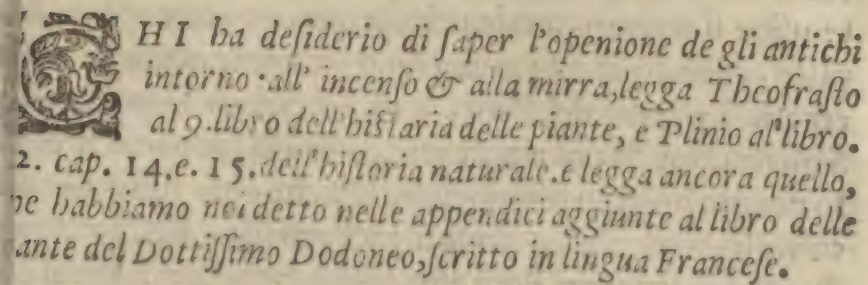 CHI ha deſiderio di ſaper l'openione de gli antichi
intorno all' incenſo & alla mirra, legga Theofraſto
al 9. libro dell'hiſtoria delle piante, e Plinio al'libro.
2. cap. 14. e. 15. dell'hiſtoria naturale. e legga ancora quello,
he habbiamo noi detto nelle appendici aggiunte al libro delle
ante del Dottiſſimo Dodoneo, ſcritto in lingua Franceſe.